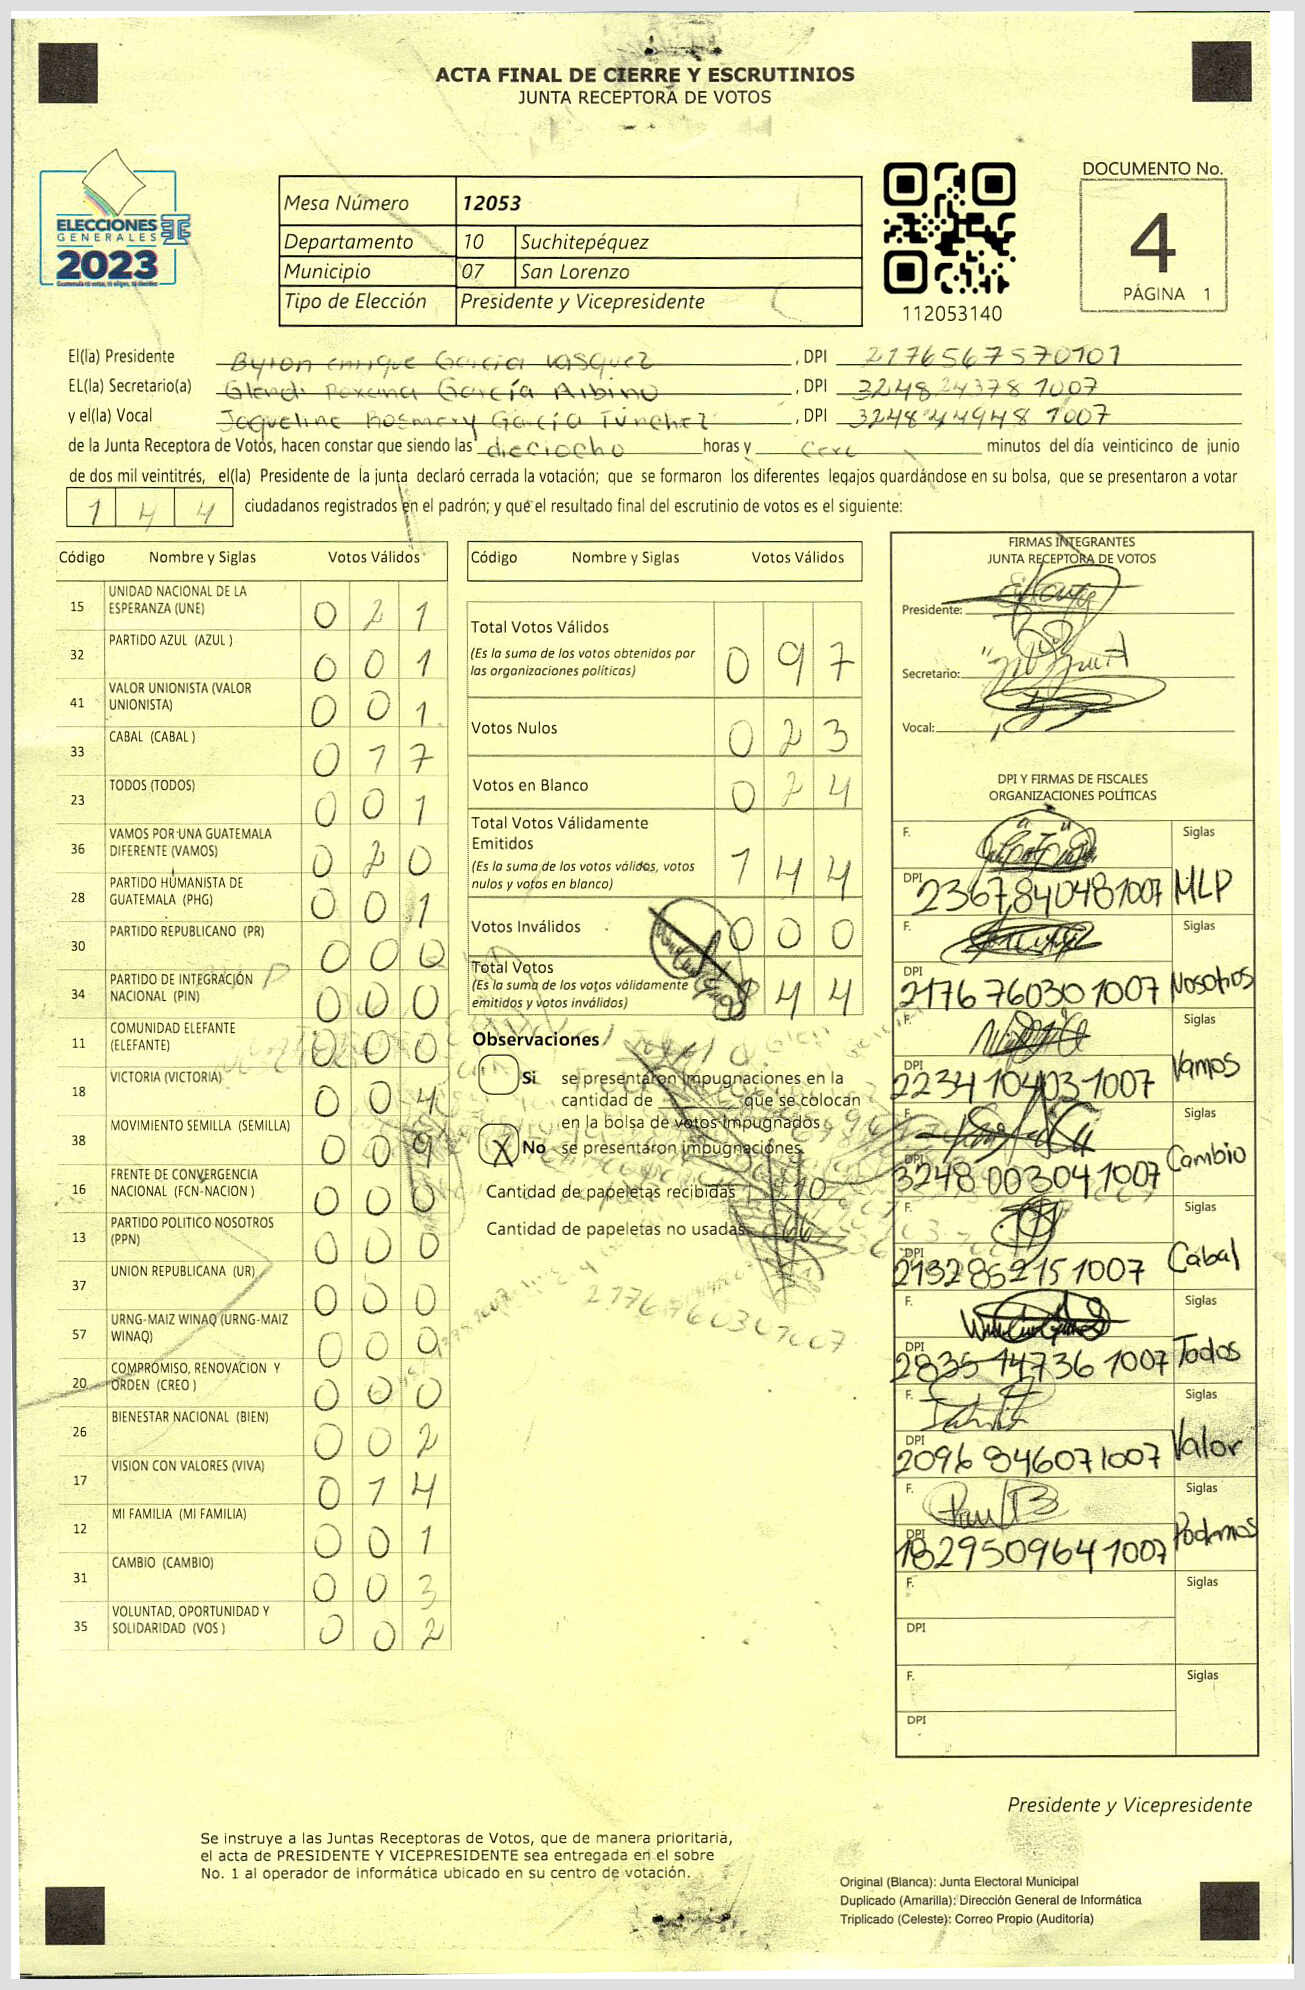 ACTA FINAL DE CIERRE Y ESCRUTINIOS
JUNTA RECEPTORA DE VOTOS
ELECCIONES
GENERALES
2023
Mesa Número 12053
Departamento 10 Suchitepéquez
Municipio 07 San Lorenzo
Tipo de Elección Presidente y Vicepresidente
112053140
DOCUMENTO No.
4
PÁGINA 1
El(la) Presidente Byron Enrique García Vasquez, DPI 2176567570101
EL(la) Secretario(a) Glendi Roxana García Albino, DPI 3248243781007
y el(la) Vocal Jaqueline Rosmery García Túnchez, DPI 3248449481007
de la Junta Receptora de Votos, hacen constar que siendo las dieciocho horas y cero minutos del día veinticinco de junio
de dos mil veintitrés, el(la) Presidente de la junta declaró cerrada la votación; que se formaron los diferentes legajos guardándose en su bolsa, que se presentaron a votar
1 4 4 ciudadanos registrados en el padrón; y que el resultado final del escrutinio de votos es el siguiente:
Código Nombre y Siglas Votos Válidos
15 UNIDAD NACIONAL DE LA ESPERANZA (UNE) 0 2 1
32 PARTIDO AZUL (AZUL ) 0 0 1
41 VALOR UNIONISTA (VALOR UNIONISTA) 0 0 1
33 CABAL (CABAL ) 0 1 7
23 TODOS (TODOS) 0 0 1
36 VAMOS POR UNA GUATEMALA DIFERENTE (VAMOS) 0 2 0
28 PARTIDO HUMANISTA DE GUATEMALA (PHG) 0 0 1
30 PARTIDO REPUBLICANO (PR) 0 0 0
34 PARTIDO DE INTEGRACIÓN NACIONAL (PIN) 0 0 0
11 COMUNIDAD ELEFANTE (ELEFANTE) 0 0 0
18 VICTORIA (VICTORIA) 0 0 4
38 MOVIMIENTO SEMILLA (SEMILLA) 0 0 9
16 FRENTE DE CONVERGENCIA NACIONAL (FCN-NACION ) 0 0 0
13 PARTIDO POLITICO NOSOTROS (PPN) 0 0 0
37 UNION REPUBLICANA (UR) 0 0 0
57 URNG-MAIZ WINAQ (URNG-MAIZ WINAQ) 0 0 0
20 COMPROMISO, RENOVACION Y ORDEN (CREO ) 0 0 0
26 BIENESTAR NACIONAL (BIEN) 0 0 2
17 VISION CON VALORES (VIVA) 0 1 4
12 MI FAMILIA (MI FAMILIA) 0 0 1
31 CAMBIO (CAMBIO) 0 0 3
35 VOLUNTAD, OPORTUNIDAD Y SOLIDARIDAD (VOS ) 0 0 2
Código Nombre y Siglas Votos Válidos
Total Votos Válidos 0 9 7
(Es la suma de los votos obtenidos por
las organizaciones políticas)
Votos Nulos 0 2 3
Votos en Blanco 0 2 4
Total Votos Válidamente
Emitidos 1 4 4
(Es la suma de los votos válidos, votos
nulos y votos en blanco)
Votos Inválidos 0 0 0
Total Votos 4 4
(Es la suma de los votos válidamente
emitidos y votos inválidos)
Observaciones
Si se presentaron impugnaciones en la
cantidad de que se colocan
en la bolsa de votos Impugnados
X No se presentaron impugnaciones.
Cantidad de papeletas recibidas
Cantidad de papeletas no usadas
2176760301007
FIRMAS INTEGRANTES
JUNTA RECEPTORA DE VOTOS
Presidente:
Secretario:
Vocal:
DPI Y FIRMAS DE FISCALES
ORGANIZACIONES POLÍTICAS
F. Siglas
DPI 2367840481007 MLP
F. Siglas
DPI 2176760301007 Nosotros
F. Siglas
DPI 2234104031007 Vamos
F. Siglas
DPI 3248003041007 Cambio
F. Siglas
DPI 2132862151007 Cabal
F. Siglas
DPI 2835147361007 Todos
F. Siglas
DPI 2096846071007 Valor
F. Siglas
DPI 1829509641007 Podemos
F. Siglas
DPI
F. Siglas
DPI
Presidente y Vicepresidente
Se instruye a las Juntas Receptoras de Votos, que de manera prioritaria,
el acta de PRESIDENTE Y VICEPRESIDENTE sea entregada en el sobre
No. 1 al operador de informática ubicado en su centro de votación.
Original (Blanca): Junta Electoral Municipal
Duplicado (Amarilla): Dirección General de Informática
Triplicado (Celeste): Correo Propio (Auditoría)